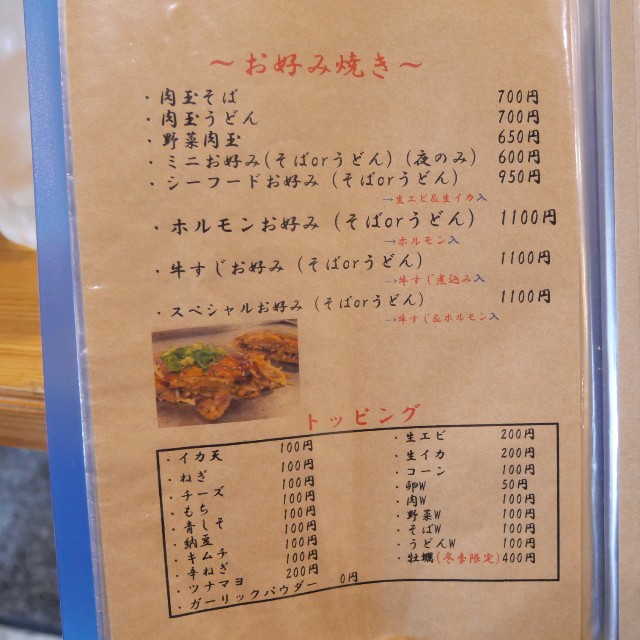 ～お好み焼き～
・肉玉そば 700円
・肉玉うどん 700円
・野菜肉玉 650円
・ミニお好み(そばorうどん)(夜のみ) 600円
・シーフードお好み(そばorうどん) 950円
→生エビ&生イカ入
・ホルモンお好み(そばorうどん) 1100円
→ホルモン入
・牛すじお好み(そばorうどん) 1100円
→牛すじ煮込み入
・スペシャルお好み(そばorうどん) 1100円
→牛すじ&ホルモン入
トッピング
・イカ天 100円
・ねぎ 100円
・チーズ 100円
・もち 100円
・青しそ 100円
・納豆 100円
・キムチ 100円
・辛ねぎ 100円
・ツナマヨ 200円
・ガーリックパウダー 0円
・生エビ 200円
・生イカ 200円
・コーン 100円
・卵W 50円
・肉W 100円
・野菜W 100円
・そばW 100円
・うどんW 100円
・牡蠣(冬季限定) 400円